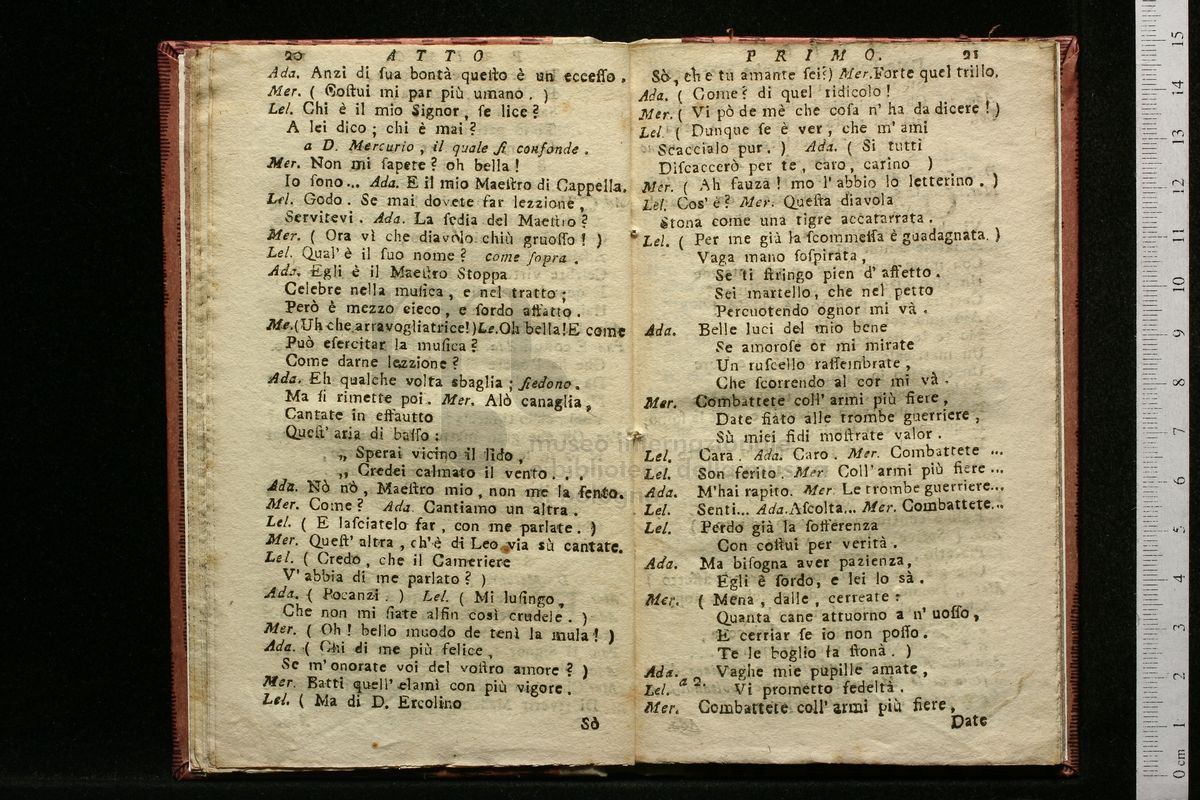 20 ATTO
Ada. Anzi di ſua bontà queſto è un ecceſſo.
Mer. ( Coſtui mi par più umano. )
Lel. Chi è il mio Signor, ſe lice?
A lei dico; chi è mai?
a D. Mercurio, il quale ſi confonde.
Mer. Non mi ſapete? oh bella!
Io ſono... Ada. E il mio Maeſtro di Cappella.
Lel. Godo. Se mai dovete far lezzione,
Servitevi. Ada. La ſedia del Maeſtro?
Mer. ( Ora vì che diavolo chiù gruoſſo! )
Lel. Qual' è il ſuo nome? come ſopra.
Ada. Egli è il Maeſtro Stoppa
Celebre nella muſica, e nel tratto;
Però è mezzo cieco, e ſordo affatto.
Me.(Uh che arravogliatrice!)Le.Oh bella!E come
Può eſercitar la muſica?
Come darne lezzione?
Ada. Eh qualche volta sbaglia; ſiedono.
Ma ſi rimette poi. Mer. Alò canaglia,
Cantate in effautto
Queſt' aria di baſſo:
„ Sperai vicino il lido,
„ Credei calmato il vento...
Ada. Nò nò, Maeſtro mio, non me la ſento.
Mer. Come? Ada. Cantiamo un altra.
Lel. ( E laſciatelo far, con me parlate. )
Mer. Queſt' altra, ch'è di Leo via sù cantate.
Lel. ( Credo, che il Cameriere
V' abbia di me parlato? )
Ada. ( Pocanzi. ) Lel. ( Mi luſingo,
Che non mi ſiate alfin così crudele. )
Mer. ( Oh! bello muodo de tenì la mula! )
Ada. ( Chi di me più felice,
Se m' onorate voi del voſtro amore? )
Mer. Batti quell' elamì con più vigore.
Lel. ( Ma di D. Ercolino
Sò
PRIMO. 21
Sò, che tu amante ſei?) Mer.Forte quel trillo.
Ada. ( Come? di quel ridicolo!
Mer. ( Vi pò de mè che coſa n' ha da dicere! )
Lel. ( Dunque ſe è ver, che m' ami
Scaccialo pur. ) Ada. ( Si tutti
Diſcaccerò per te, caro, carino )
Mer. ( Ah fauza! mo l' abbio lo letterino. )
Lel. Cos' è? Mer. Queſta diavola
Stona come una tigre accatarrata.
Lel. ( Per me già la ſcommeſſa è guadagnata. )
Vaga mano ſoſpirata,
Se ti ſtringo pien d' affetto.
Sei martello, che nel petto
Percuotendo ognor mi và.
Ada. Belle luci del mio bene
Se amoroſe or mi mirate
Un ruſcello raſſembrate,
Che ſcorrendo al cor mi và.
Mer. Combattete coll' armi più fiere,
Date fiato alle trombe guerriere,
Sù miei fidi moſtrate valor.
Lel. Cara. Ada. Caro. Mer. Combattete ...
Lel. Son ferito. Mer. Coll' armi più fiere ...
Ada. M'hai rapito. Mer. Le trombe guerriere...
Lel. Senti... Ada.Aſcolta... Mer. Combattete...
Lel. Perdo già la ſofferenza
Con coſtui per verità.
Ada. Ma biſogna aver pazienza,
Egli è ſordo, e lei lo sà.
Mer. ( Mena, dalle, cerreate:
Quanta cane attuorno a n' uoſſo,
E cerriar ſe io non poſſo.
Te le boglio fa ſtonà. )
Ada. Vaghe mie pupille amate,
Lel. a 2. Vi prometto fedeltà.
Mer. Combattete coll' armi più fiere,
Date
museo internazionale
biblioteca della musica
0 cm 1 2 3 4 5 6 7 8 9 10 11 12 13 14 15